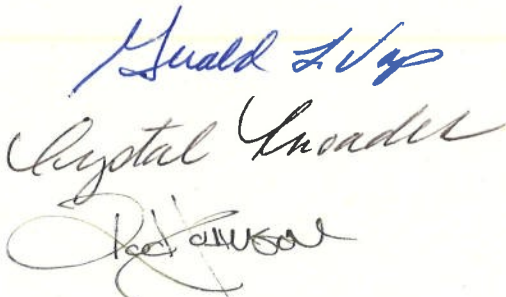 Gerald L Vap
Crystal Rhoades
Rod Johnson